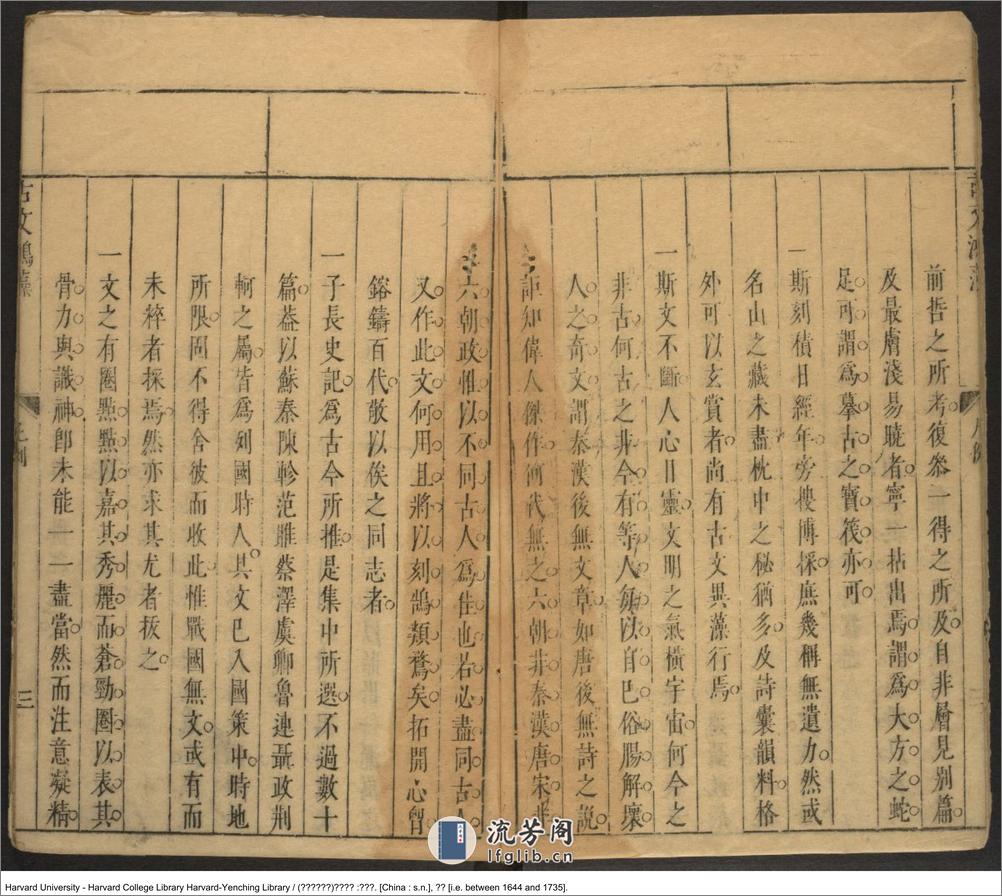 前哲之所考復參一得之所及自非層見別篇
及最膚淺易曉者寧一拈出焉謂為大方之蛇
足可謂為摹古之寶筏亦可
一斯刻積日經年旁搜博採庶幾稱無遺力然或
名山之藏未盡枕中之秘猶多及詩囊韻料格
外可以玄賞者尚有古文異藻行焉
一斯文不斷人心日靈文明之氣橫宇宙何今之
非古何古之非今有等人餙以自巳俗腸解壞
人之奇文謂秦漢後無文章如唐後無詩之說
詎知偉人傑作何代無之六朝非秦漢唐宋非
六朝政惟以不同古人為佳也若必盡同古人
又作此文何用且將以刻鵠類鶩矣拓開心胷
鎔鑄百代敬以俟之同志者
一子長史記為古今所推是集中所選不過數十
篇葢以蘇秦陳軫范雎蔡澤虞卿魯連聶政荆
軻之屬皆為列國時人其文巳入國策中時地
所限固不得舍彼而收此惟戰國無文或有而
未粹者採焉然亦求其尤者拔之
一文之有圈點點以嘉其秀麗而蒼勁圈以表其
骨力與識神卽未能一一盡當然而注意凝精
古文鴻藻
三
流芳阁
lfglib.cn
Harvard University - Harvard College Library Harvard-Yenching Library / (??????)???? :???. [China : s.n.], ?? [i.e. between 1644 and 1735].